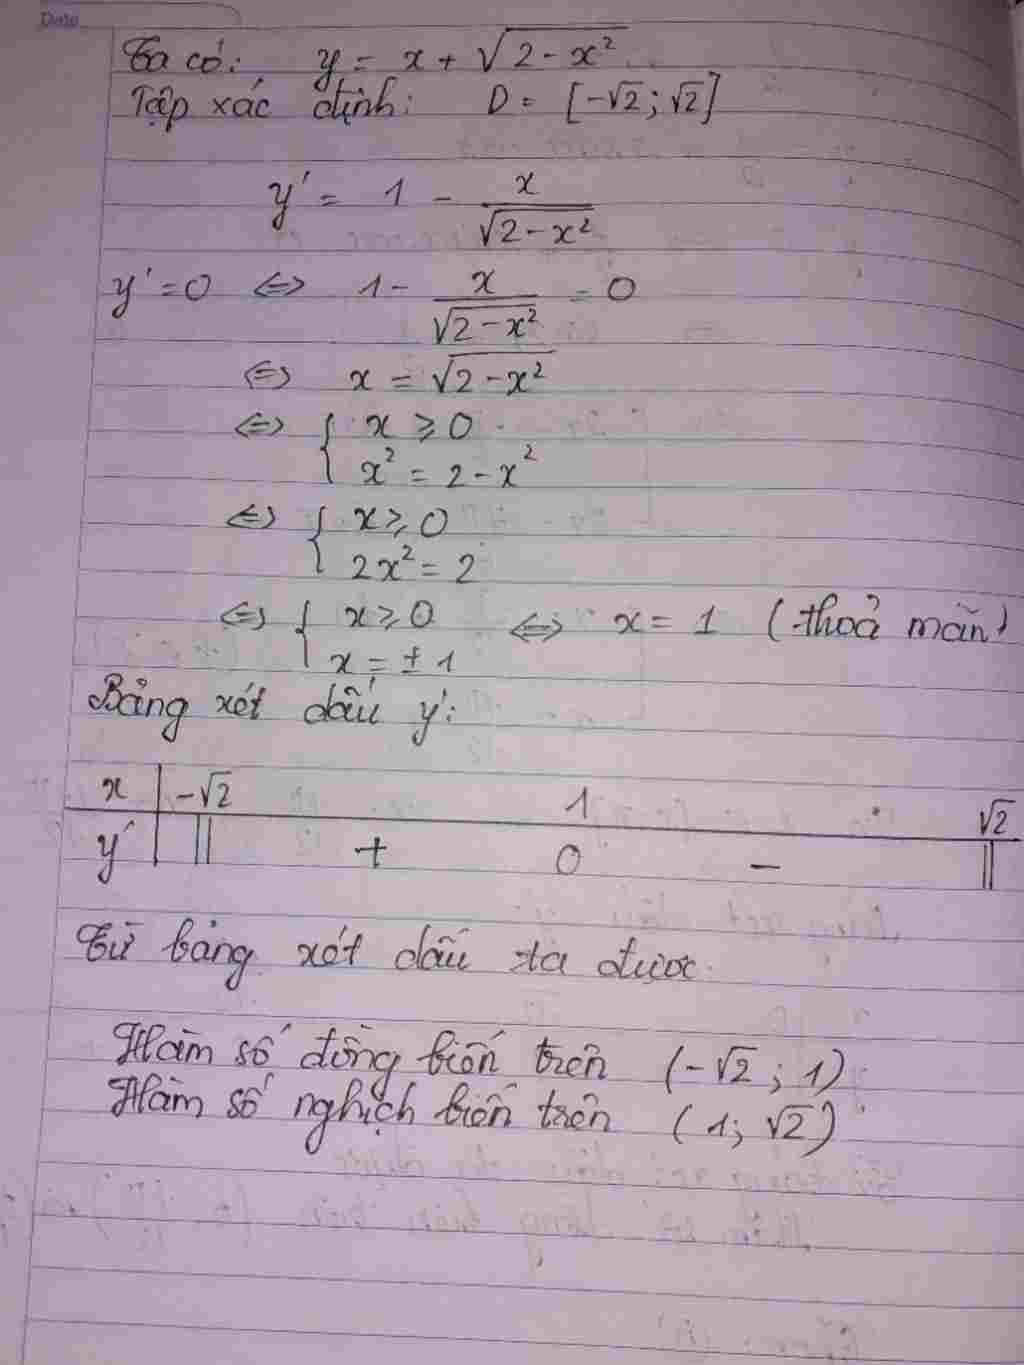 Date
Ta có: y = x + √(2 - x²)
Tập xác định: D = [-√2; √2]
y' = 1 - x/√(2 - x²)
y' = 0 ⇔ 1 - x/√(2 - x²) = 0
⇔ x = √(2 - x²)
⇔ { x ≥ 0
x² = 2 - x²
⇔ { x ≥ 0
2x² = 2
⇔ { x ≥ 0 ⇔ x = 1 (thoả mãn)
x = ±1
Bảng xét dấu y':
x | -√2 1 √2
y' || + 0 - ||
Từ bảng xét dấu ta được
Hàm số đồng biến trên (-√2; 1)
Hàm số nghịch biến trên (1; √2)